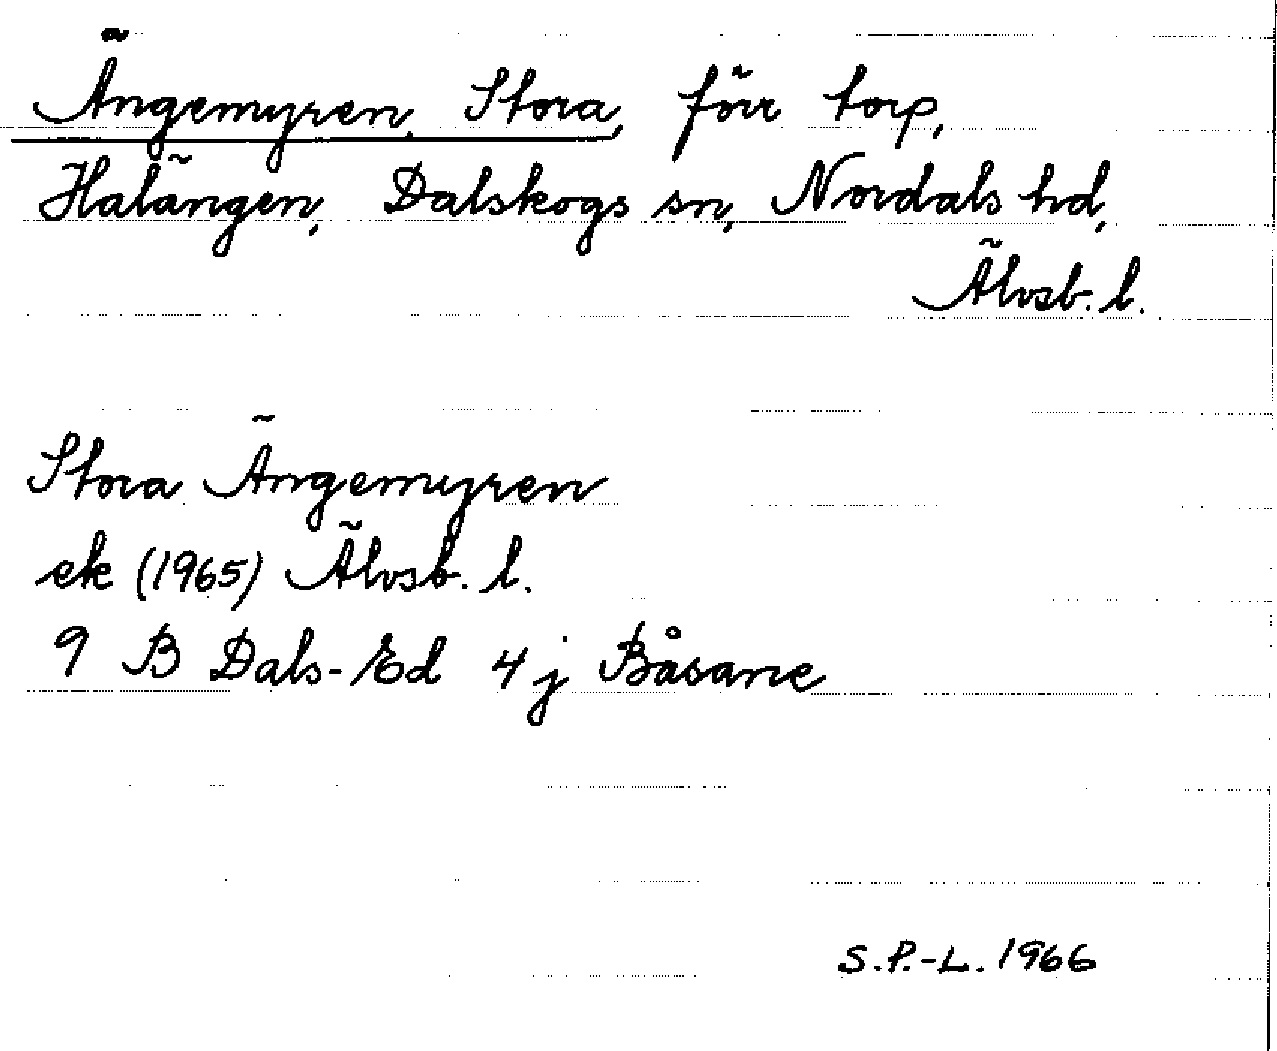 Ängemyren, Stora, förr torp,
Halängen, Dalskogs sn, Nordals hd,
Älvsb. l.
Stora Ängemyren
ek (1965) Älvsb. l.
9 B Dals-Ed 4 j Båsane
S.P.-L. 1966